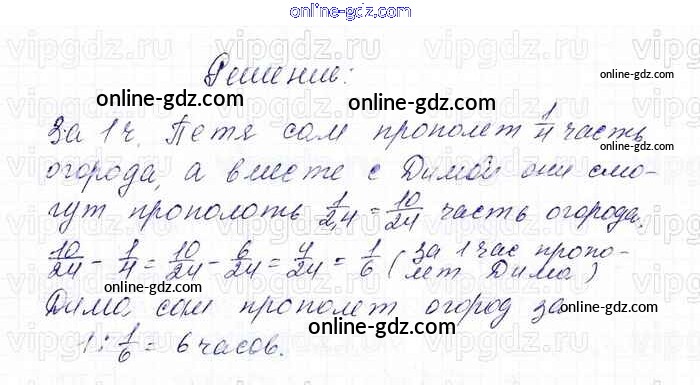 online-gdz.com
Решение:
За 1 ч. Петя сам прополет 1/4 часть
огорода, а вместе с Димой они смо-
гут прополоть 1/2,4 = 10/24 часть огорода.
10/24 - 1/4 = 10/24 - 6/24 = 4/24 = 1/6 (за 1 час пропо-
лет Дима)
Дима сам прополет огород за
1 : 1/6 = 6 часов.
online-gdz.com
online-gdz.com
online-gdz.com
online-gdz.com
online-gdz.com
online-gdz.com
online-gdz.com
online-gdz.com
vipgdz.ru